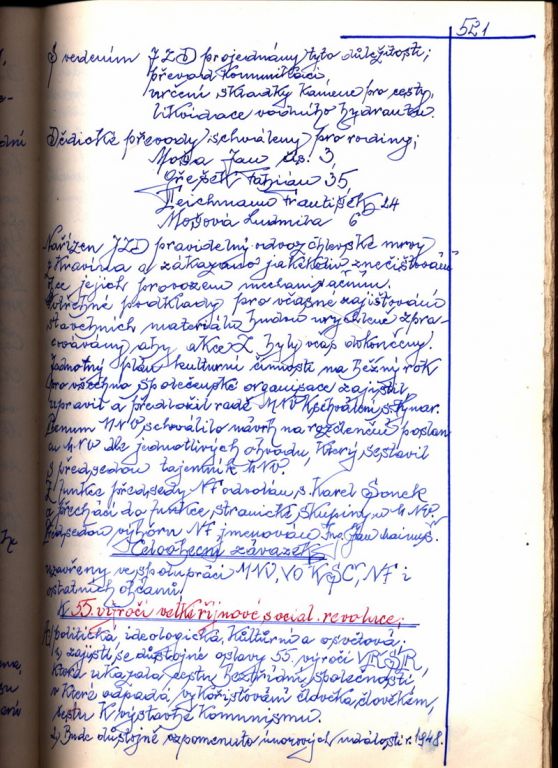 521
S vedením JZD projednány tyto důležitosti;
převod komunikací,
určení skládky kamene pro cesty,
likvidace vodního hydrantu.
Dědické převody schváleny pro rodiny;
Moša Jan čp. 3,
Grešek 35,
Teichmann František 24
Mošová Ludmila 6
Nařízen JZD pravidelný odvoz chlévské mrvy
z kravína a zakázáno jakékoliv znečišťování
jejich provozem mechanisačním.
Potřebné podklady pro včasné zajišťování
stavebních materiálů budou urychleně zpra-
covávány aby akce Z byly včas dokončeny.
Jednotný plán kulturní činnosti na běžný rok
pro všechna společenské organisace zajistil
upravil a předložil radě MNV k schválení s.
Plenum MNV, schválilo návrh na rozčlenění poslan
ců MNV dle jednotlivých obvodů, který sestavil
s předsedou tajemník MNV.
Z funkce předsedy NF odvolán, s. Karel Šonek
a přechází do funkce, stranické skupiny u MNV.
Předsedou výboru NF, jmenován Ing. Jan
Celoobecní závazek
uzavřený ve spolupráci MNV, VO KSČ, NF i
ostatních občanů
K 55. výročí velké říjnové social. revoluce;
A/ politická ideologická, kulturní a osvětová;
1, zajistí se důstojné oslavy 55. výročí VŘSR,
která ukázala cestu, beztřídní společnosti
v které odpadá, vykořisťování člověka člověkem,
cestu k výstavbě komunismu.
2, Bude důstojně vzpomenuto únorových událostí r. 1948.